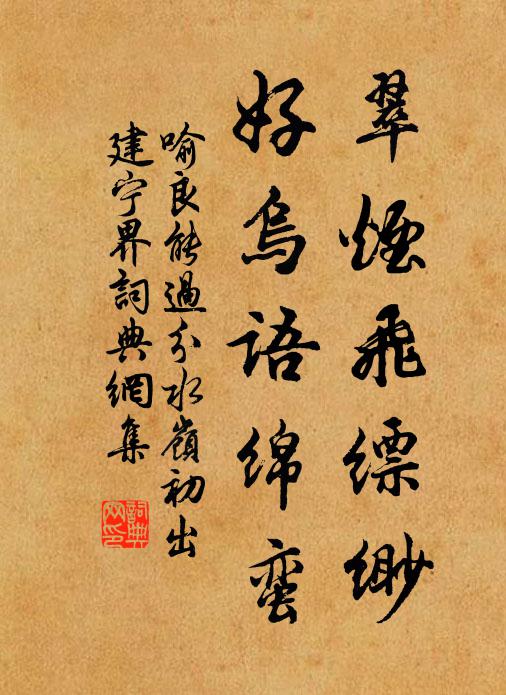 翠烟飞缥缈
好鸟语绵蛮
喻良能过分水岭初出
建宁界词典网集
词典网印